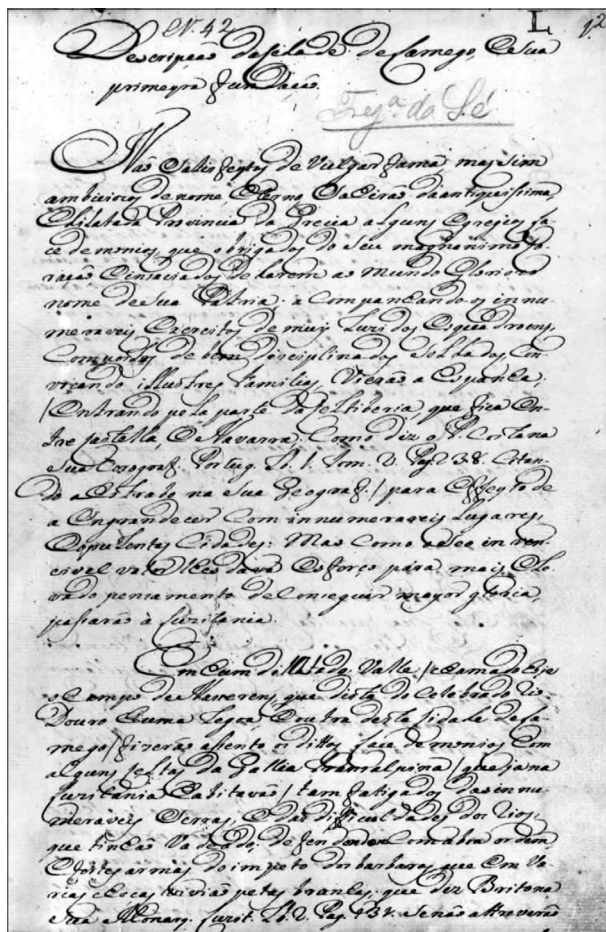 N. 42
L 92
Descripção da Cidade de Lamego, e Sua
primeyra fundação.
Freg.ª da Sé
Não Satisfeytos de Vulgar fama, mas sim
ambiciosos de nome Eterno Sahirão da antiquissima,
e dilatada Provincia da Grecia alguns Egregios La-
cedemonios, que obrigados do Seu magnanimo Co-
ração e insaciados de darem ao Mundo Glorioso
nome de Sua Patria: acompanhando-os innu-
meraveis Exercitos de muy Luzidos Esquadroens,
Compostos de bem disciplinados Soldados Con-
illustres familias, Vierão a Espanha,
/Entrando pela parte da Celtiberia, que fica En-
tre Castella, e Navarra. Como diz o P. Costa na
Sua Corograf. Portug. L. 1. Tom. 2. Pag. 238. Citan-
do a Estrabo na Sua Geograf./ para Effeyto de
a Engrandecer Com innumeraveis Lugares,
e opulentas Cidades: Mas Como o Seu inven-
civel valor lhes dava Esforço para mais Ele-
vado pensamento de Conseguir mayor gloria,
passarão à Luzitania.
Em hum do Valle /chamado hoje
o Campo de que dista do Celebrado Rio
Douro huma Legoa, e outra desta Cidade de La-
mego/ fizerão assento os dittos Lacedemonios Com
alguns Celtas da Gallia /que ja na
Luzitania habitavão/ tam fatigados das innu-
meraveis Serras, e das difficuldades dos Rios,
que tinhão Vadeado; defendendo Com a boa ordem,
e fortes armas do impeto dos barbaros, que Em Va-
rias Vivião petas brancas, que diz Brito na
Sua Monarq. Luzit. L. 2. Pag. 132. Se não atreverão